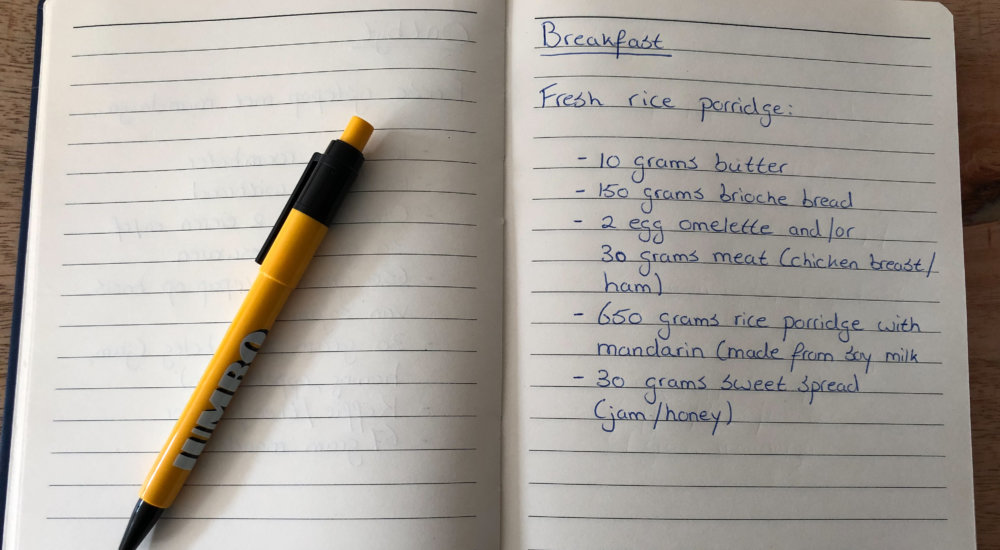 JUMBO
Breakfast
Fresh rice porridge:
- 10 grams butter
- 150 grams brioche bread
- 2 egg omelette and/or
30 grams meat (chicken breast/
ham)
- 650 grams rice porridge with
mandarin (made from soy milk
- 30 grams sweet spread
(jam/honey)